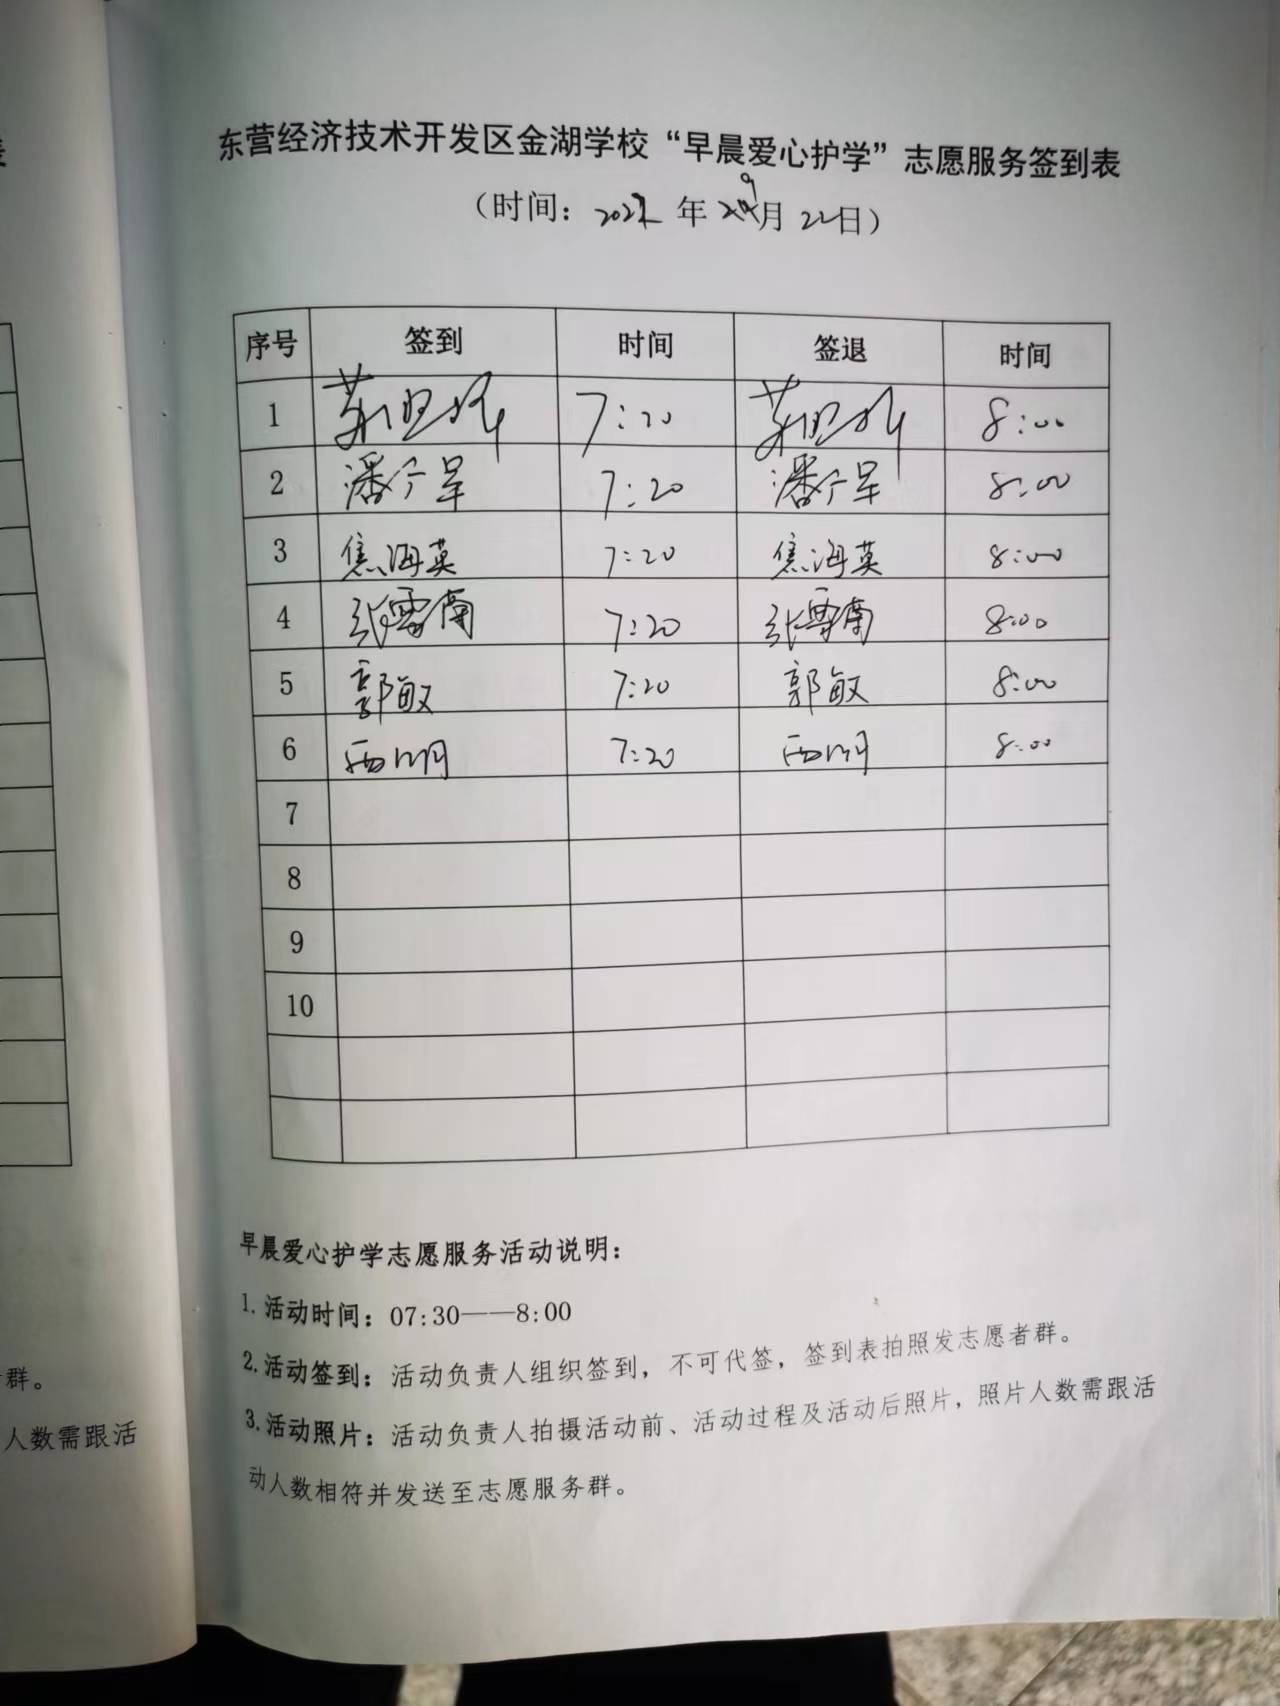 东营经济技术开发区金湖学校“早晨爱心护学”志愿服务签到表
（时间：2022年9月22日）
序号 签到 时间 签退 时间
1 7:20 8:00
2 潘 7:20 潘 8:00
3 焦海英 7:20 焦海英 8:00
4 张雪南 7:20 张雪南 8:00
5 郭敏 7:20 郭敏 8:00
6 7:20 8:00
7
8
9
10
早晨爱心护学志愿服务活动说明：
1.活动时间：07:30——8:00
2.活动签到：活动负责人组织签到，不可代签，签到表拍照发志愿者群。
3.活动照片：活动负责人拍摄活动前、活动过程及活动后照片，照片人数需跟活
动人数相符并发送至志愿服务群。
群。
人数需跟活